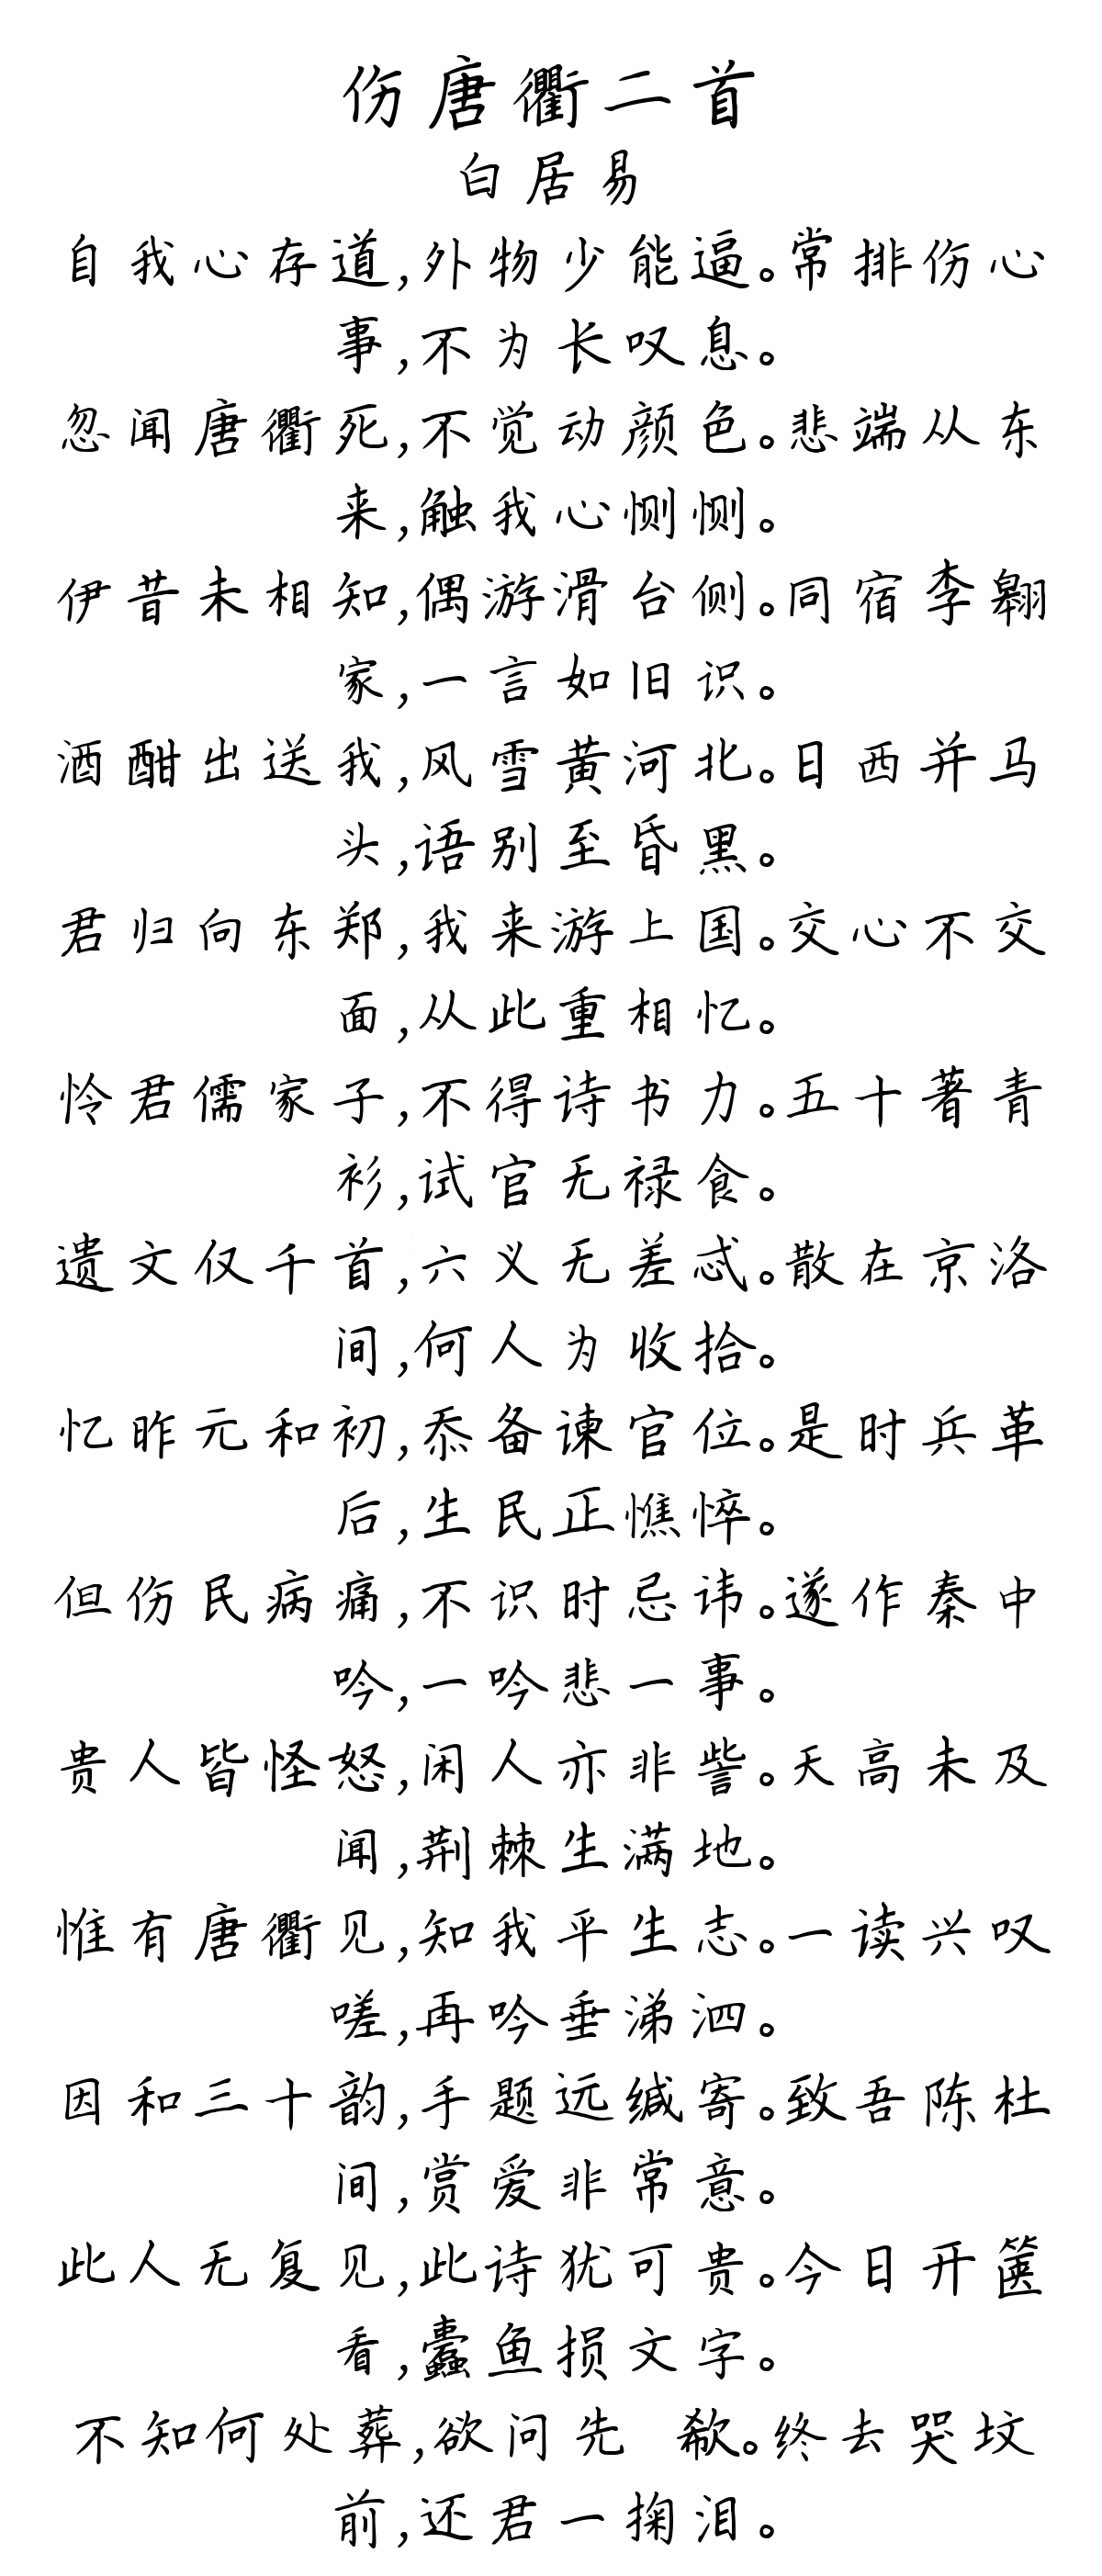 伤唐衢二首
白居易
自我心存道,外物少能逼。常排伤心
事,不为长叹息。
忽闻唐衢死,不觉动颜色。悲端从东
来,触我心恻恻。
伊昔未相知,偶游滑台侧。同宿李翱
家,一言如旧识。
酒酣出送我,风雪黄河北。日西并马
头,语别至昏黑。
君归向东郑,我来游上国。交心不交
面,从此重相忆。
怜君儒家子,不得诗书力。五十著青
衫,试官无禄食。
遗文仅千首,六义无差忒。散在京洛
间,何人为收拾。
忆昨元和初,忝备谏官位。是时兵革
后,生民正憔悴。
但伤民病痛,不识时忌讳。遂作秦中
吟,一吟悲一事。
贵人皆怪怒,闲人亦非訾。天高未及
闻,荆棘生满地。
惟有唐衢见,知我平生志。一读兴叹
嗟,再吟垂涕泗。
因和三十韵,手题远缄寄。致吾陈杜
间,赏爱非常意。
此人无复见,此诗犹可贵。今日开箧
看,蠹鱼损文字。
不知何处葬,欲问先 欷。终去哭坟
前,还君一掬泪。